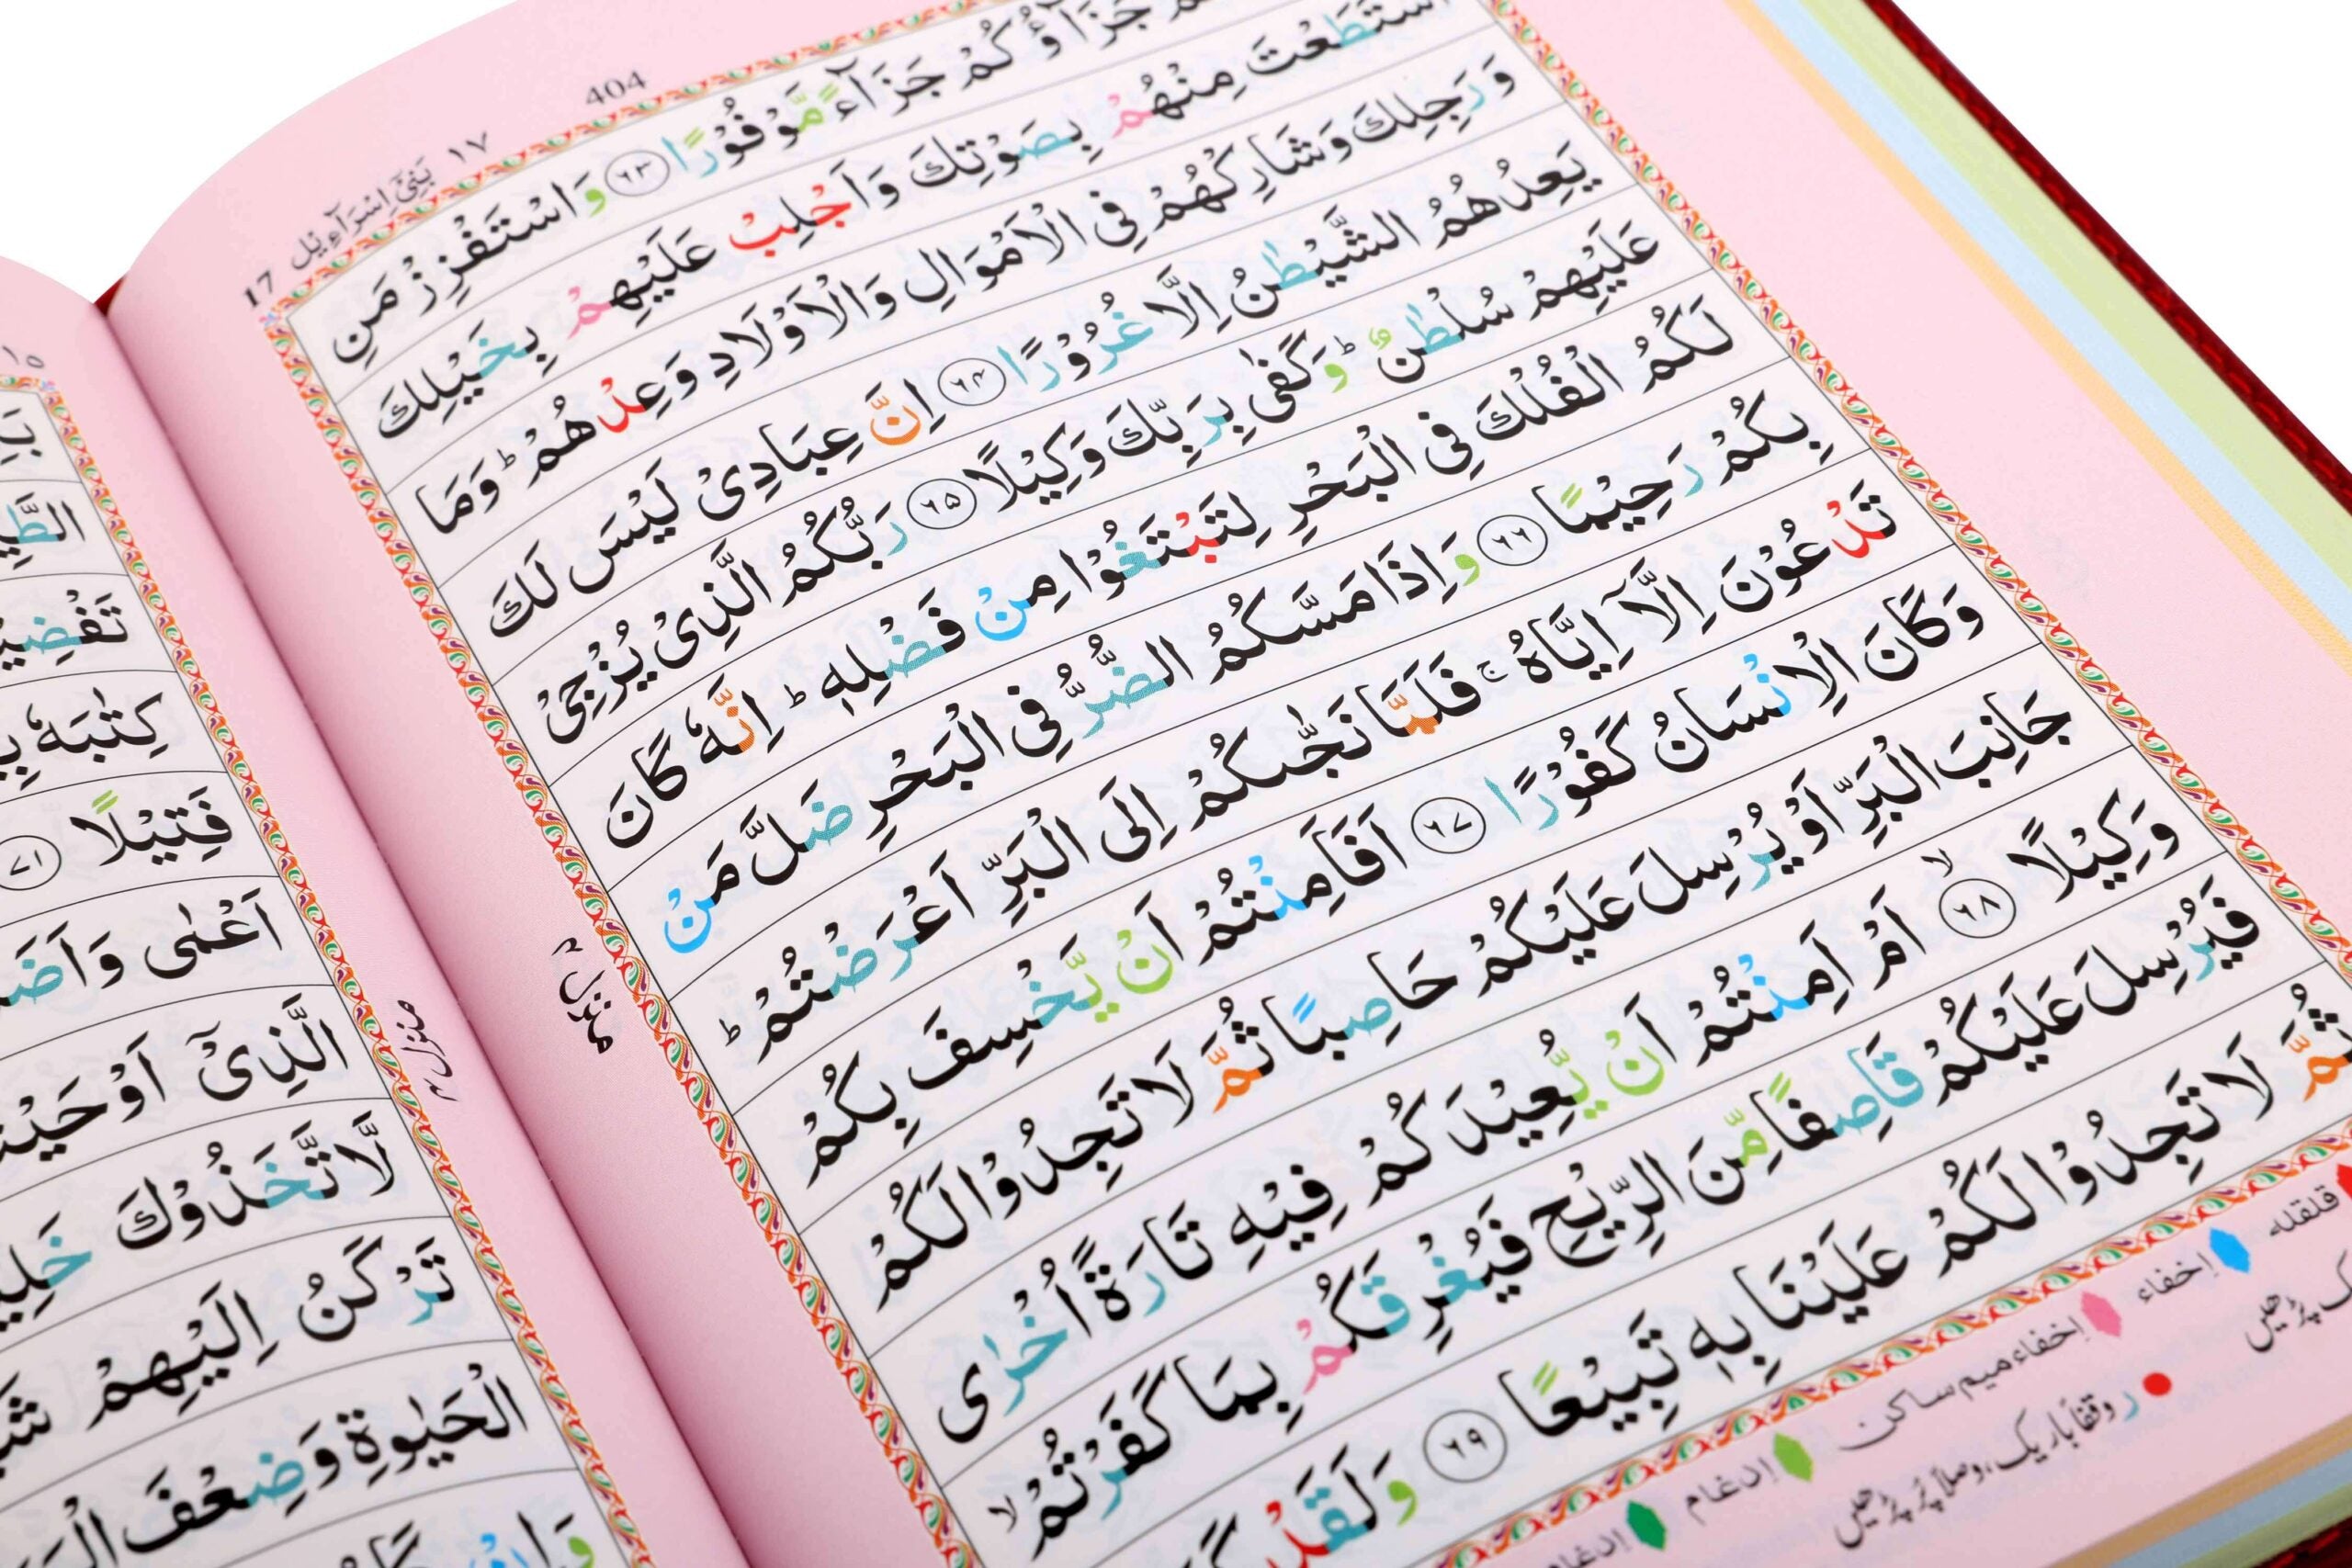 404
بَنِیْۤ اِسْرَآءِیْل ١٧
17
جَزَآؤُكُمْ جَزَآءً مَّوْفُوْرًا ﴿٦٣﴾ وَاسْتَفْزِزْ مَنِ
اسْتَطَعْتَ مِنْهُمْ بِصَوْتِكَ وَاَجْلِبْ عَلَیْهِمْ بِخَیْلِكَ
وَرَجِلِكَ وَشَارِكْهُمْ فِی الْاَمْوَالِ وَالْاَوْلَادِ وَعِدْهُمْ ؕ وَمَا
یَعِدُهُمُ الشَّیْطٰنُ اِلَّا غُرُوْرًا ﴿٦٤﴾ اِنَّ عِبَادِیْ لَیْسَ لَكَ
عَلَیْهِمْ سُلْطٰنٌ ؕ وَكَفٰی بِرَبِّكَ وَكِیْلًا ﴿٦٥﴾ رَبُّكُمُ الَّذِیْ یُزْجِیْ
لَكُمُ الْفُلْكَ فِی الْبَحْرِ لِتَبْتَغُوْا مِنْ فَضْلِهٖ ؕ اِنَّهٗ كَانَ
بِكُمْ رَحِیْمًا ﴿٦٦﴾ وَاِذَا مَسَّكُمُ الضُّرُّ فِی الْبَحْرِ ضَلَّ مَنْ
تَدْعُوْنَ اِلَّاۤ اِیَّاهُ ۚ فَلَمَّا نَجّٰىكُمْ اِلَی الْبَرِّ اَعْرَضْتُمْ ؕ
وَكَانَ الْاِنْسَانُ كَفُوْرًا ﴿٦٧﴾ اَفَاَمِنْتُمْ اَنْ یَّخْسِفَ بِكُمْ
جَانِبَ الْبَرِّ اَوْ یُرْسِلَ عَلَیْكُمْ حَاصِبًا ثُمَّ لَا تَجِدُوْا لَكُمْ
وَكِیْلًا ﴿٦٨﴾ ۙ اَمْ اَمِنْتُمْ اَنْ یُّعِیْدَكُمْ فِیْهِ تَارَةً اُخْرٰی
فَیُرْسِلَ عَلَیْكُمْ قَاصِفًا مِّنَ الرِّیْحِ فَیُغْرِقَكُمْ بِمَا كَفَرْتُمْ ۙ
ثُمَّ لَا تَجِدُوْا لَكُمْ عَلَیْنَا بِهٖ تَبِیْعًا ﴿٦٩﴾ وَلَقَدْ
منزل ٤
قلقله
إخفاء
إخفاء میم ساکن
إدغام
ر وقفًا باریک، وصلاً پُر پڑھیں
١٥
تَفْضِیْ
كِتٰبَهٗ
فَتِیْلًا ﴿٧١﴾
اَعْمٰی وَاَضَ
الَّذِیْۤ اَوْحَیْنَ
لَّاتَّخَذُوْكَ خَلِیْ
تَرْكَنُ اِلَیْهِمْ شَیْ
الْحَیٰوةِ وَضِعْفَ الْ
منزل ٤